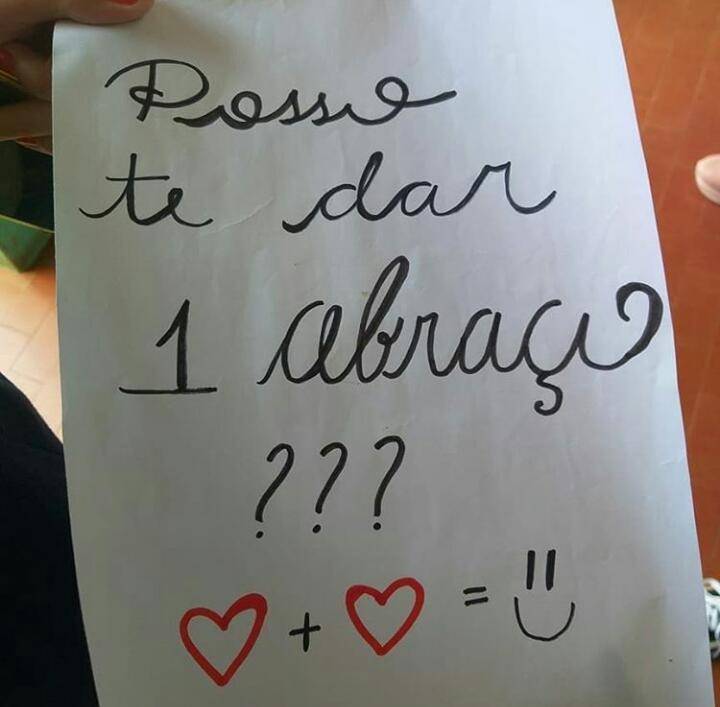 Posso
te dar
1 abraço
???
♥ + ♥ = :)